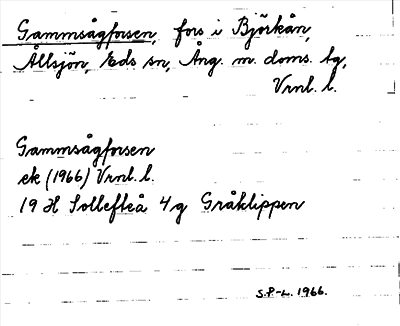 Gammsågforsen, fors i Björkån,
Ållsjön, Eds sn, Ång. m. doms. lg,
Vrnl. l.
Gammsågforsen
ek (1966) Vrnl. l.
19 H Sollefteå 4g Gråklippen
S.P-L. 1966.